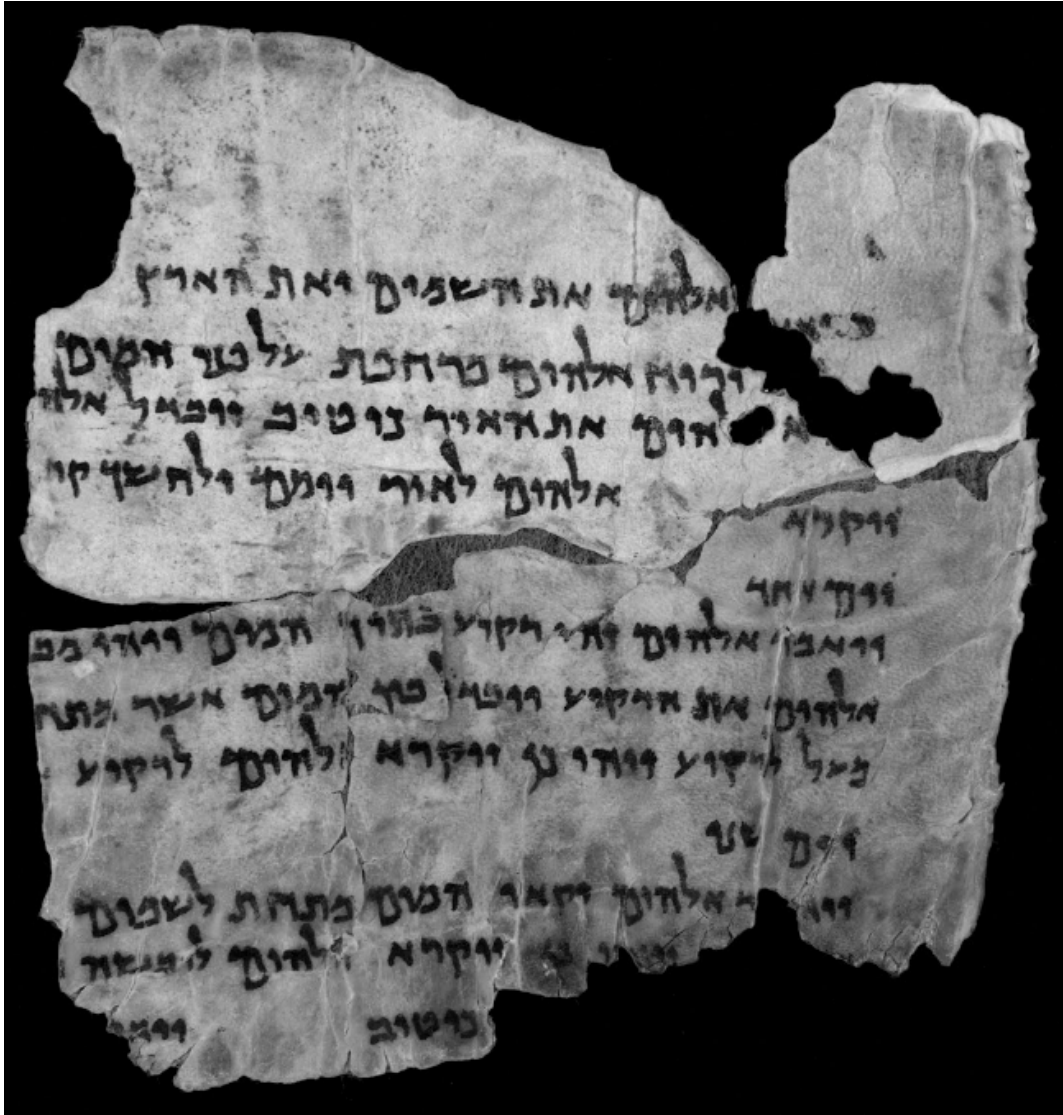 אלהים את השמים ואת הארץ
ורוח אלהים מרחפת על פני המים
א אלהים את האור כי טוב ויבדל אלה
ויקרא אלהים לאור יומם ולחשך קר
יום אחד
ויאמר אלהים יהי רקיע בתוך המים ויהי מב
אלהים את הרקיע ויבדל בין המים אשר מתח
מעל לרקיע ויהי כן ויקרא אלהים לרקיע
יום שני
ויאמר אלהים יקאו המים מתחת לשמים
כן ויקרא אלהים ליבשה
כי טוב ויאמ